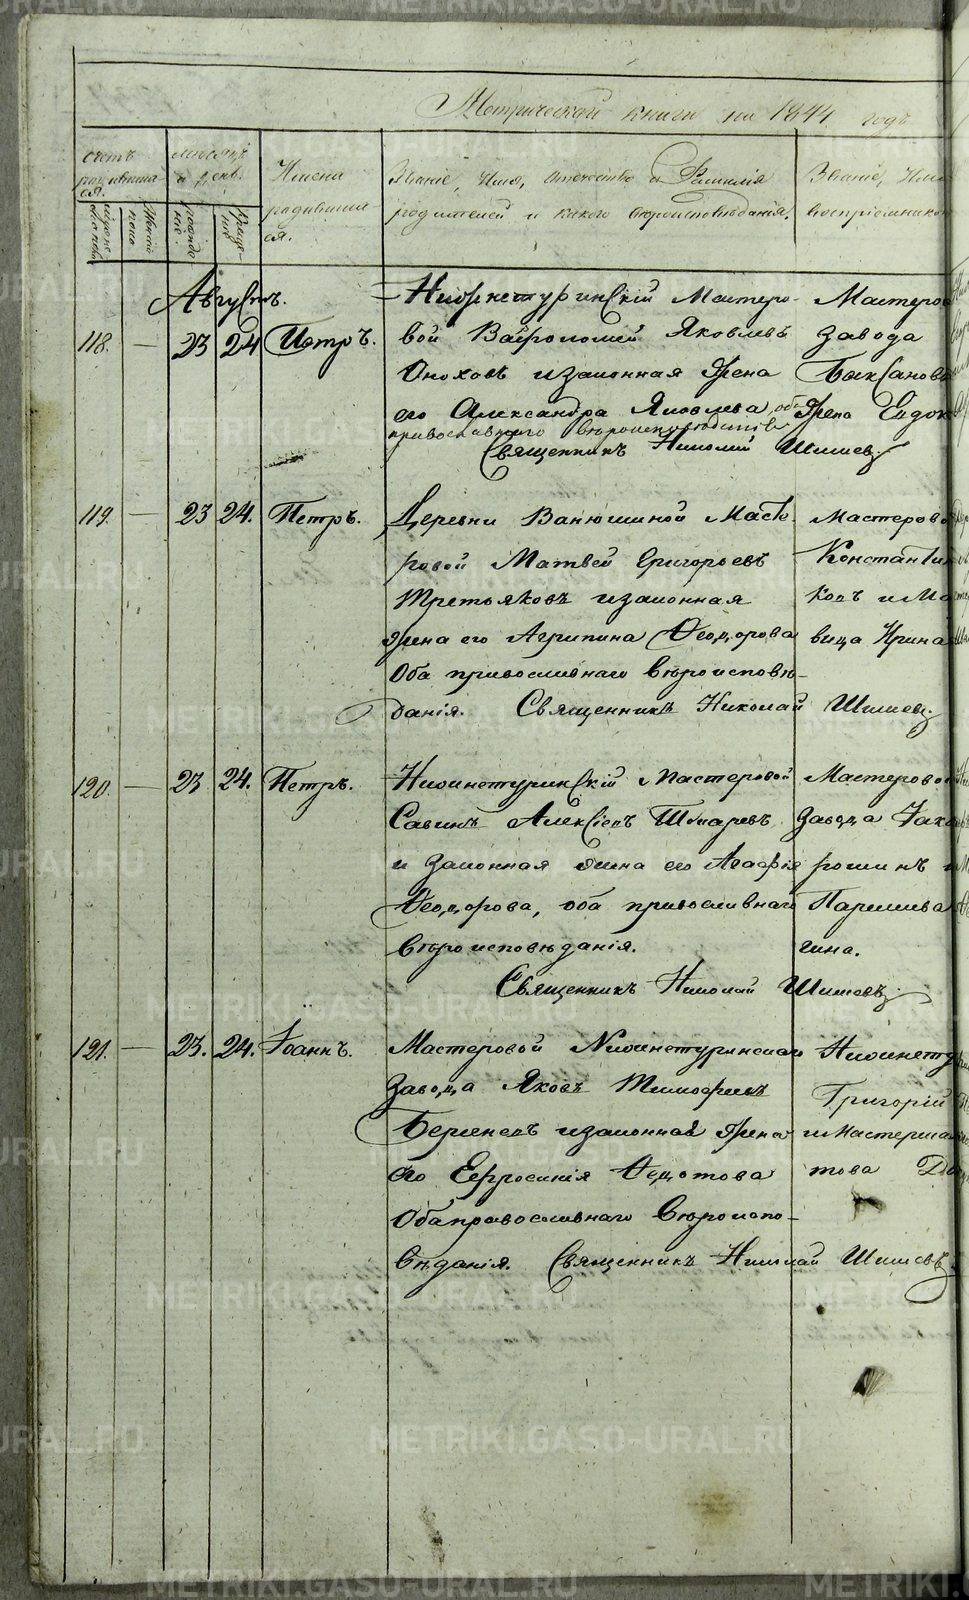 Метрической книги на 1844 годъ
счетъ родившихся.
мужеска пола
женска пола
месяцъ и день.
рождения
крещения
Имена родившихся.
Званіе, Имя, отечество и Фамилія
родителей и какого вероисповеданія.
Званіе, Имя
восприемников
Августъ.
118. — 23 24 Петръ.
Нижнетуринскій Мастеро-
вой Варфоломей Яковлевъ
Оноховъ и законная Жена
его Александра Яковлева, оба
православнаго вероисповеданія
Священникъ Николай Шишевъ
Мастеров
завода
Баксанов
Жена Евдок
119. — 23 24. Петръ.
Деревни Ванюшиной Масте-
ровой Матвей Григорьевъ
Третьяковъ и законная
жена его Агрипина Феодорова
Оба православнаго вероисповѣ-
данія. Священникъ Николай Шишевъ.
Мастерово
Константин
ковъ и Ма
вица Ирина
120. — 23 24. Петръ.
Нижнетуринскій Мастеровой
Савинъ Алексіевъ
и законная жена его Агафія
Феодорова, оба православнаго
вѣроисповѣданія.
Священникъ Николай Шишевъ.
Мастерово
завода
рошинъ и
Параскева
гина.
121. — 23. 24. Іоаннъ.
Мастеровой Нижнетуринскаго
Завода Яковъ Тимофѣевъ
и законная Жена
его Евфросинія Федотова
Оба православнаго Вѣроиспо-
вѣданія. Священникъ Николай Шишевъ
Нижнету
Григорій
и мастерска
това
METRIKI.GASO-URAL.RU